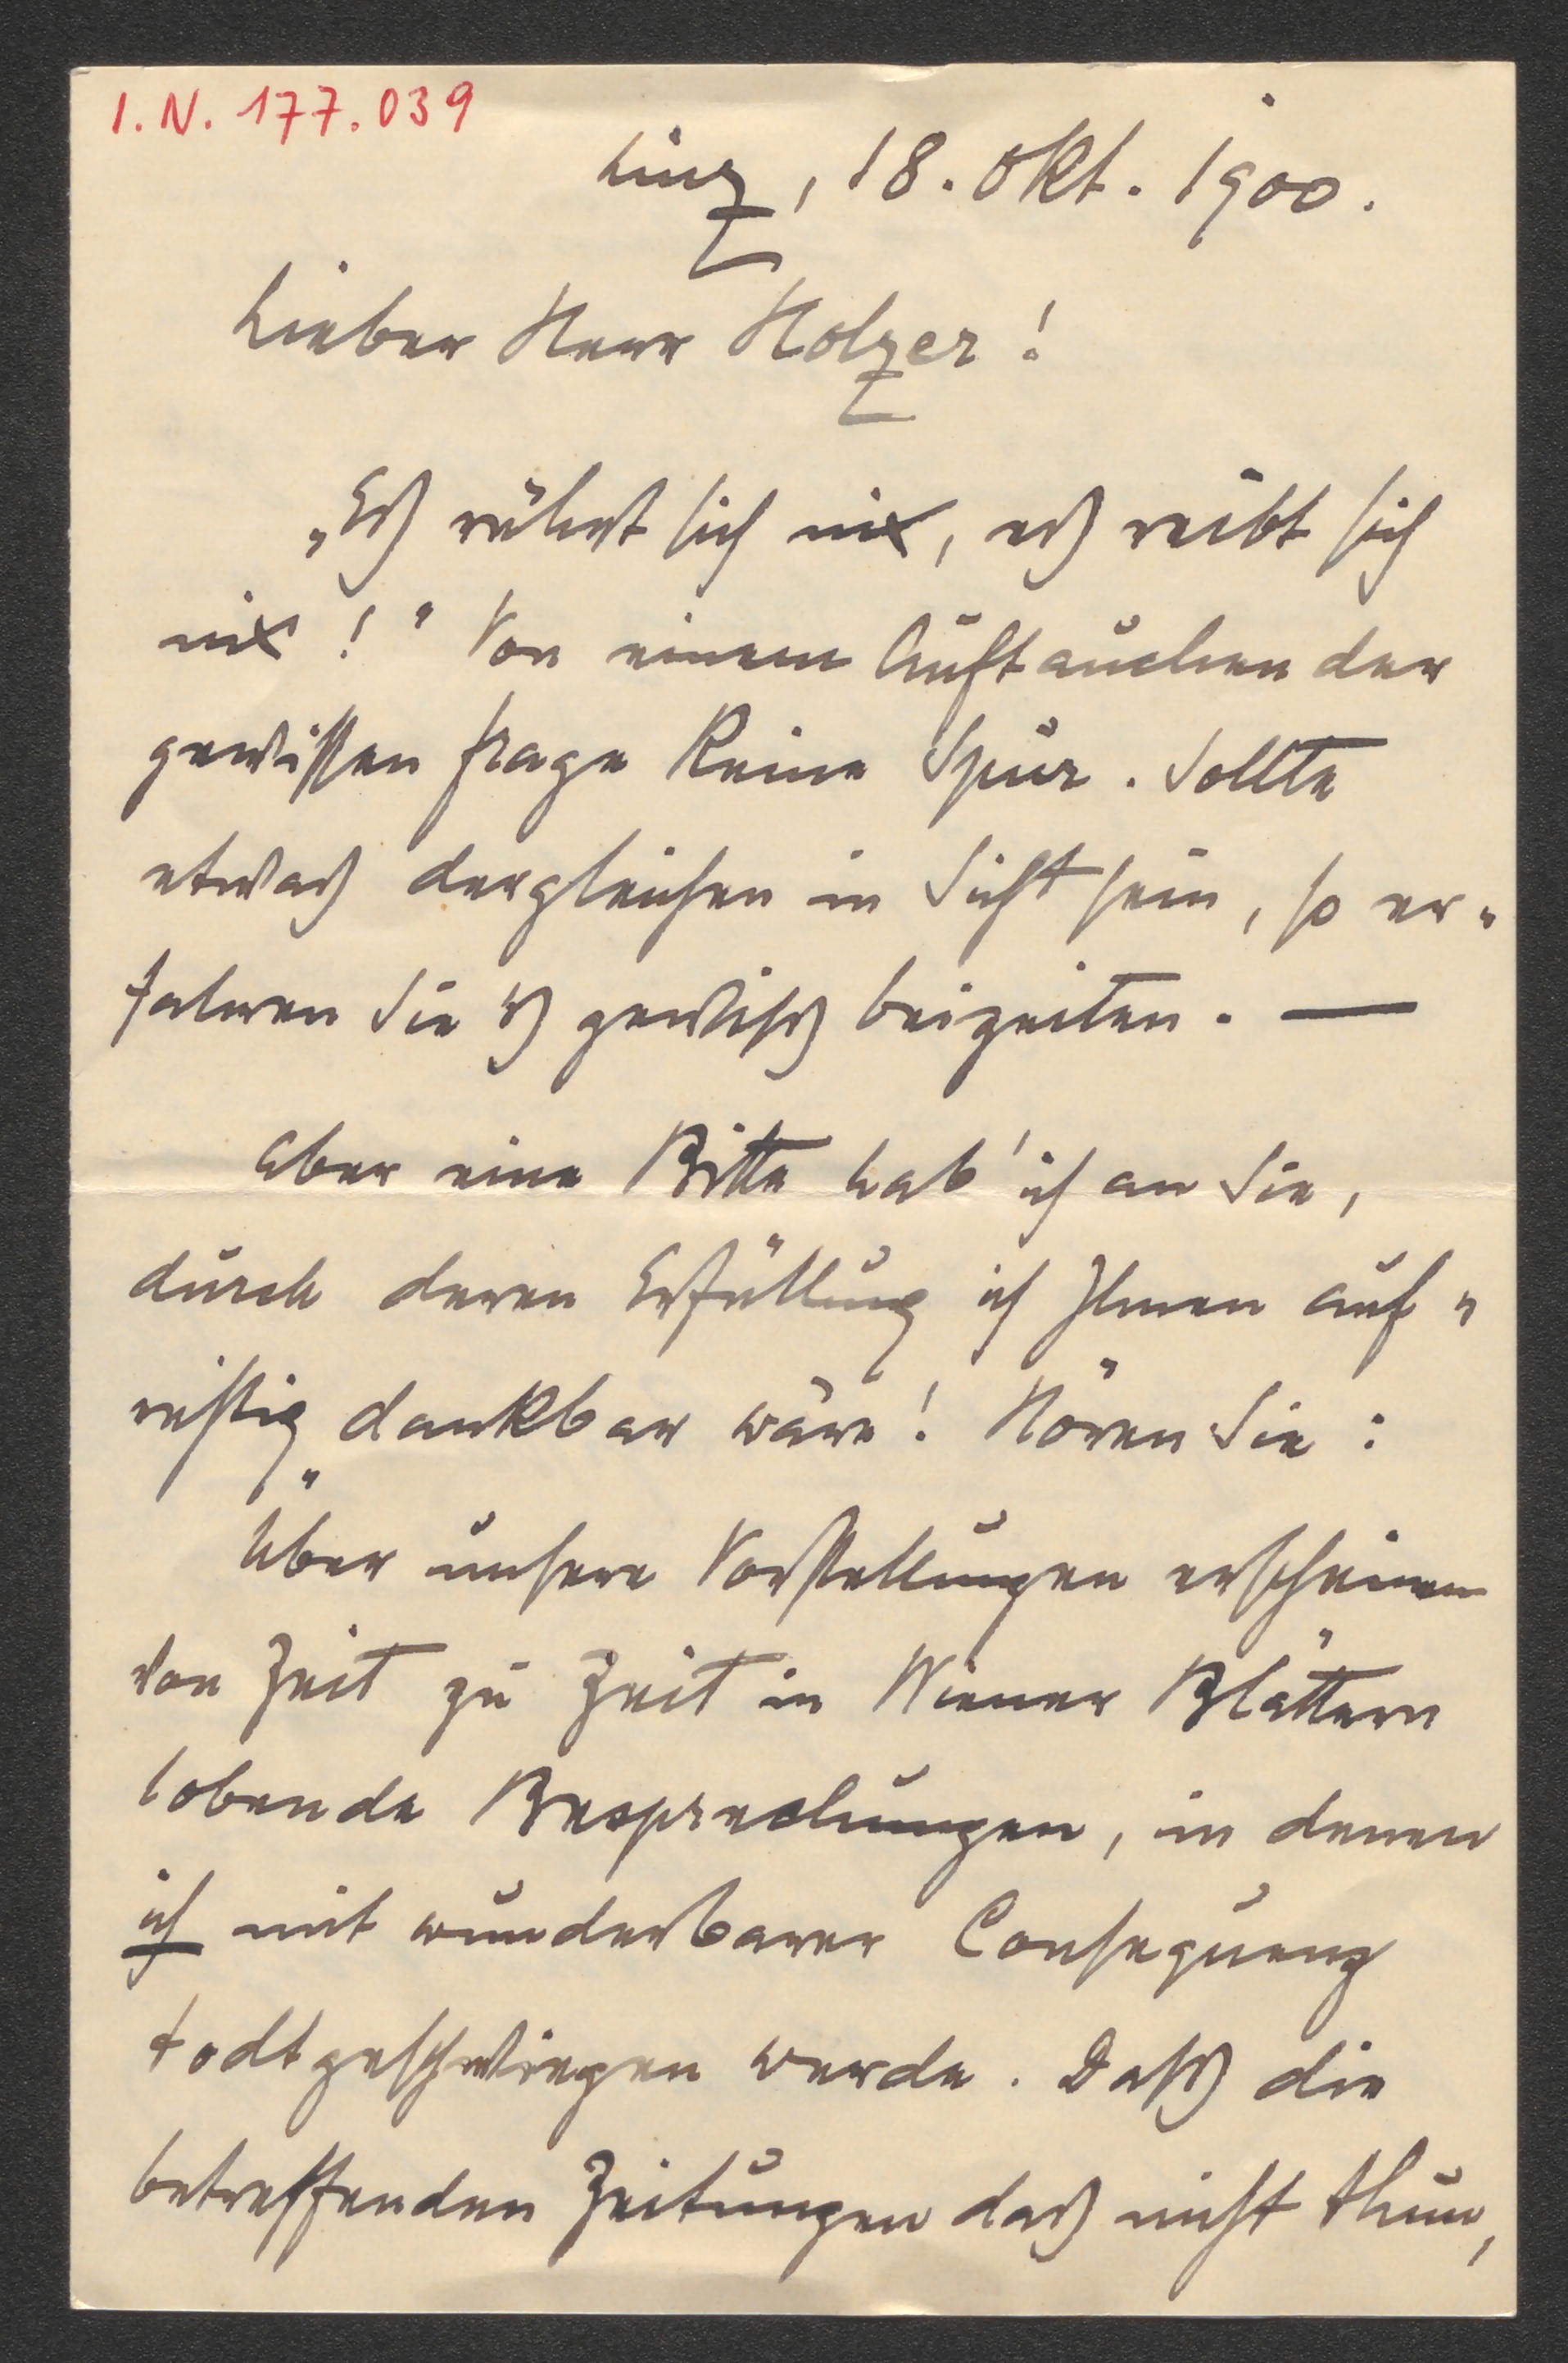 I.N. 177.039
Linz, 18. Okt. 1900.
Lieber Herr Holzer!
„Es rührt sich nix, es reibt sich
nix!" Von einem Auftauchen der
gewissen Frage keine Spur. Sollte
etwas dergleichen in Sicht sein, so er-
fahren Sie 's gewiss beizeiten. —
Aber eine Bitte hab' ich an Sie,
durch deren Erfüllung ich Ihnen auf-
richtig dankbar wäre! Hören Sie:
Über unsere Vorstellungen erscheinen
von Zeit zu Zeit in Wiener Blättern
lobende Besprechungen, in denen
ich mit wunderbarer Consequenz
todtgeschwiegen werde. Dass die
betreffenden Zeitungen das nicht thun,